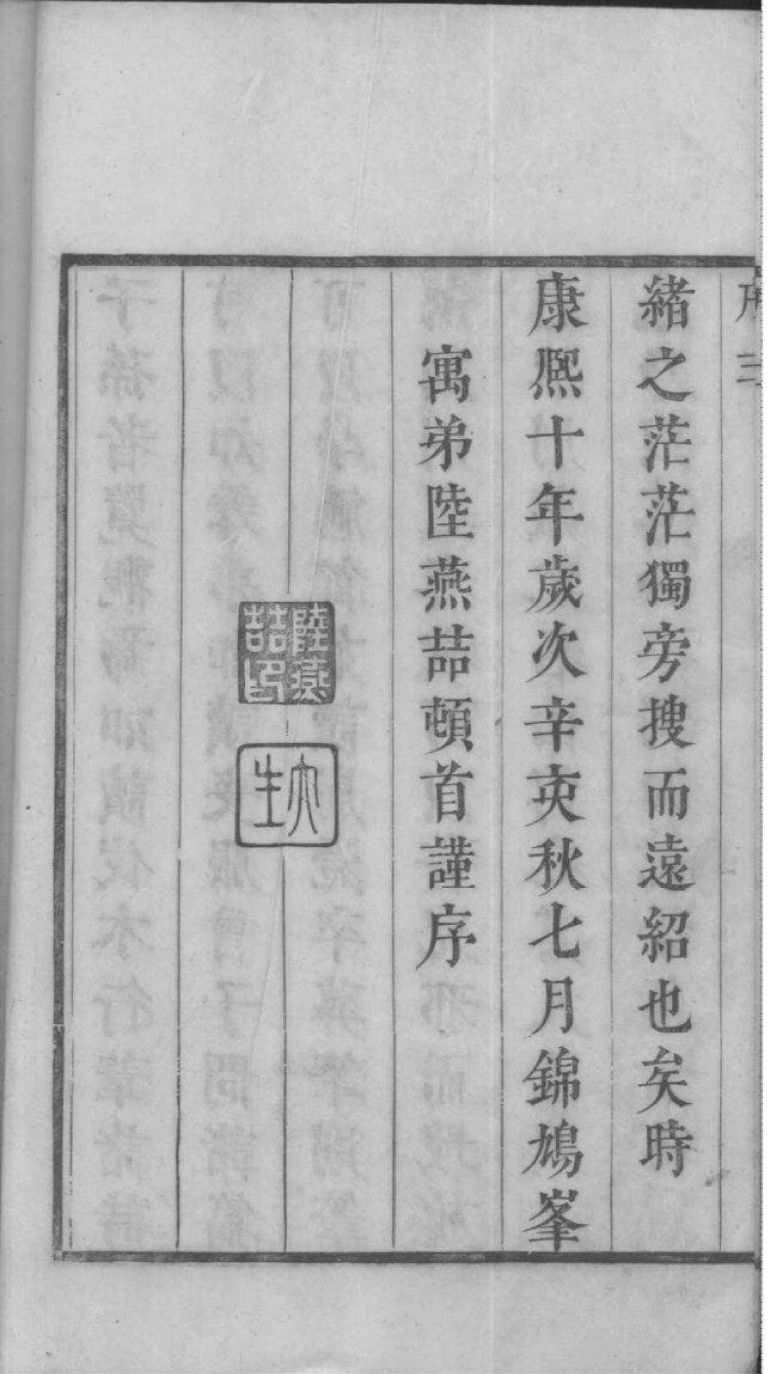 序 三
緒之茫茫獨旁搜而遠紹也矣時
康熙十年歲次辛亥秋七月錦鳩峯
寓弟陸燕喆頓首謹序
陸燕喆印